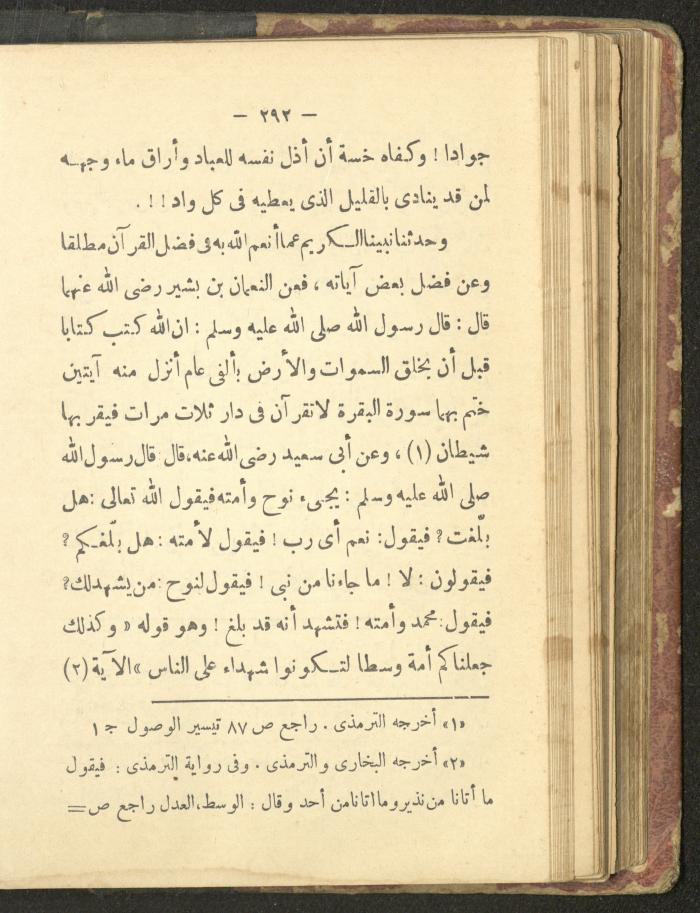 — ٢٩٢ —
جوادا ! وكفاه خسة أن أذل نفسه للعباد وأراق ماء وجهه
لمن قد ينادى بالقليل الذى يعطيه فى كل واد ! ! .
وحدثنا نبينا الكريم عما أنعم الله به فى فضل القرآن مطلقا
وعن فضل بعض آياته ، فعن النعمان بن بشير رضى الله عنهما
قال : قال رسول الله صلى الله عليه وسلم : ان الله كتب كتابا
قبل أن يخلق السموات والأرض بألفى عام أنزل منه آيتين
ختم بهما سورة البقرة لا تقرآن فى دار ثلاث مرات فيقربها
شيطان (١) ، وعن أبى سعيد رضى الله عنه، قال قال رسول الله
صلى الله عليه وسلم : يجىء نوح وأمته فيقول الله تعالى : هل
بلّغت ? فيقول : نعم أى رب ! فيقول لأمته : هل بلّغكم ?
فيقولون : لا ! ما جاءنا من نبى ! فيقول لنوح : من يشهد لك ?
فيقول : محمد وأمته ! فتشهد أنه قد بلغ ! وهو قوله « وكذلك
جعلناكم أمة وسطا لتكونوا شهداء على الناس » الآية (٢)
«١» أخرجه الترمذى . راجع ص ٨٧ تيسير الوصول ج ١
«٢» أخرجه البخارى والترمذى . وفى رواية الترمذى : فيقول
ما أتانا من نذير وما اتانا من أحد وقال : الوسط، العدل راجع ص =